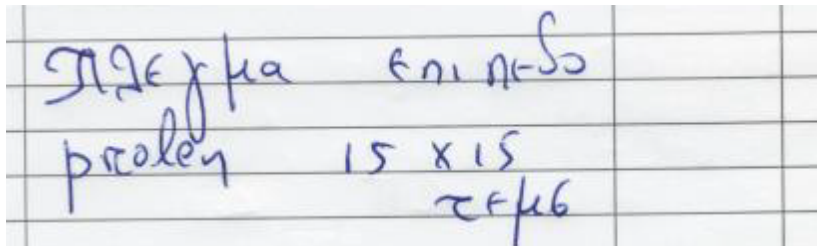 πλεγμα επιπεδο
prolen 15 x 15
τεμ6